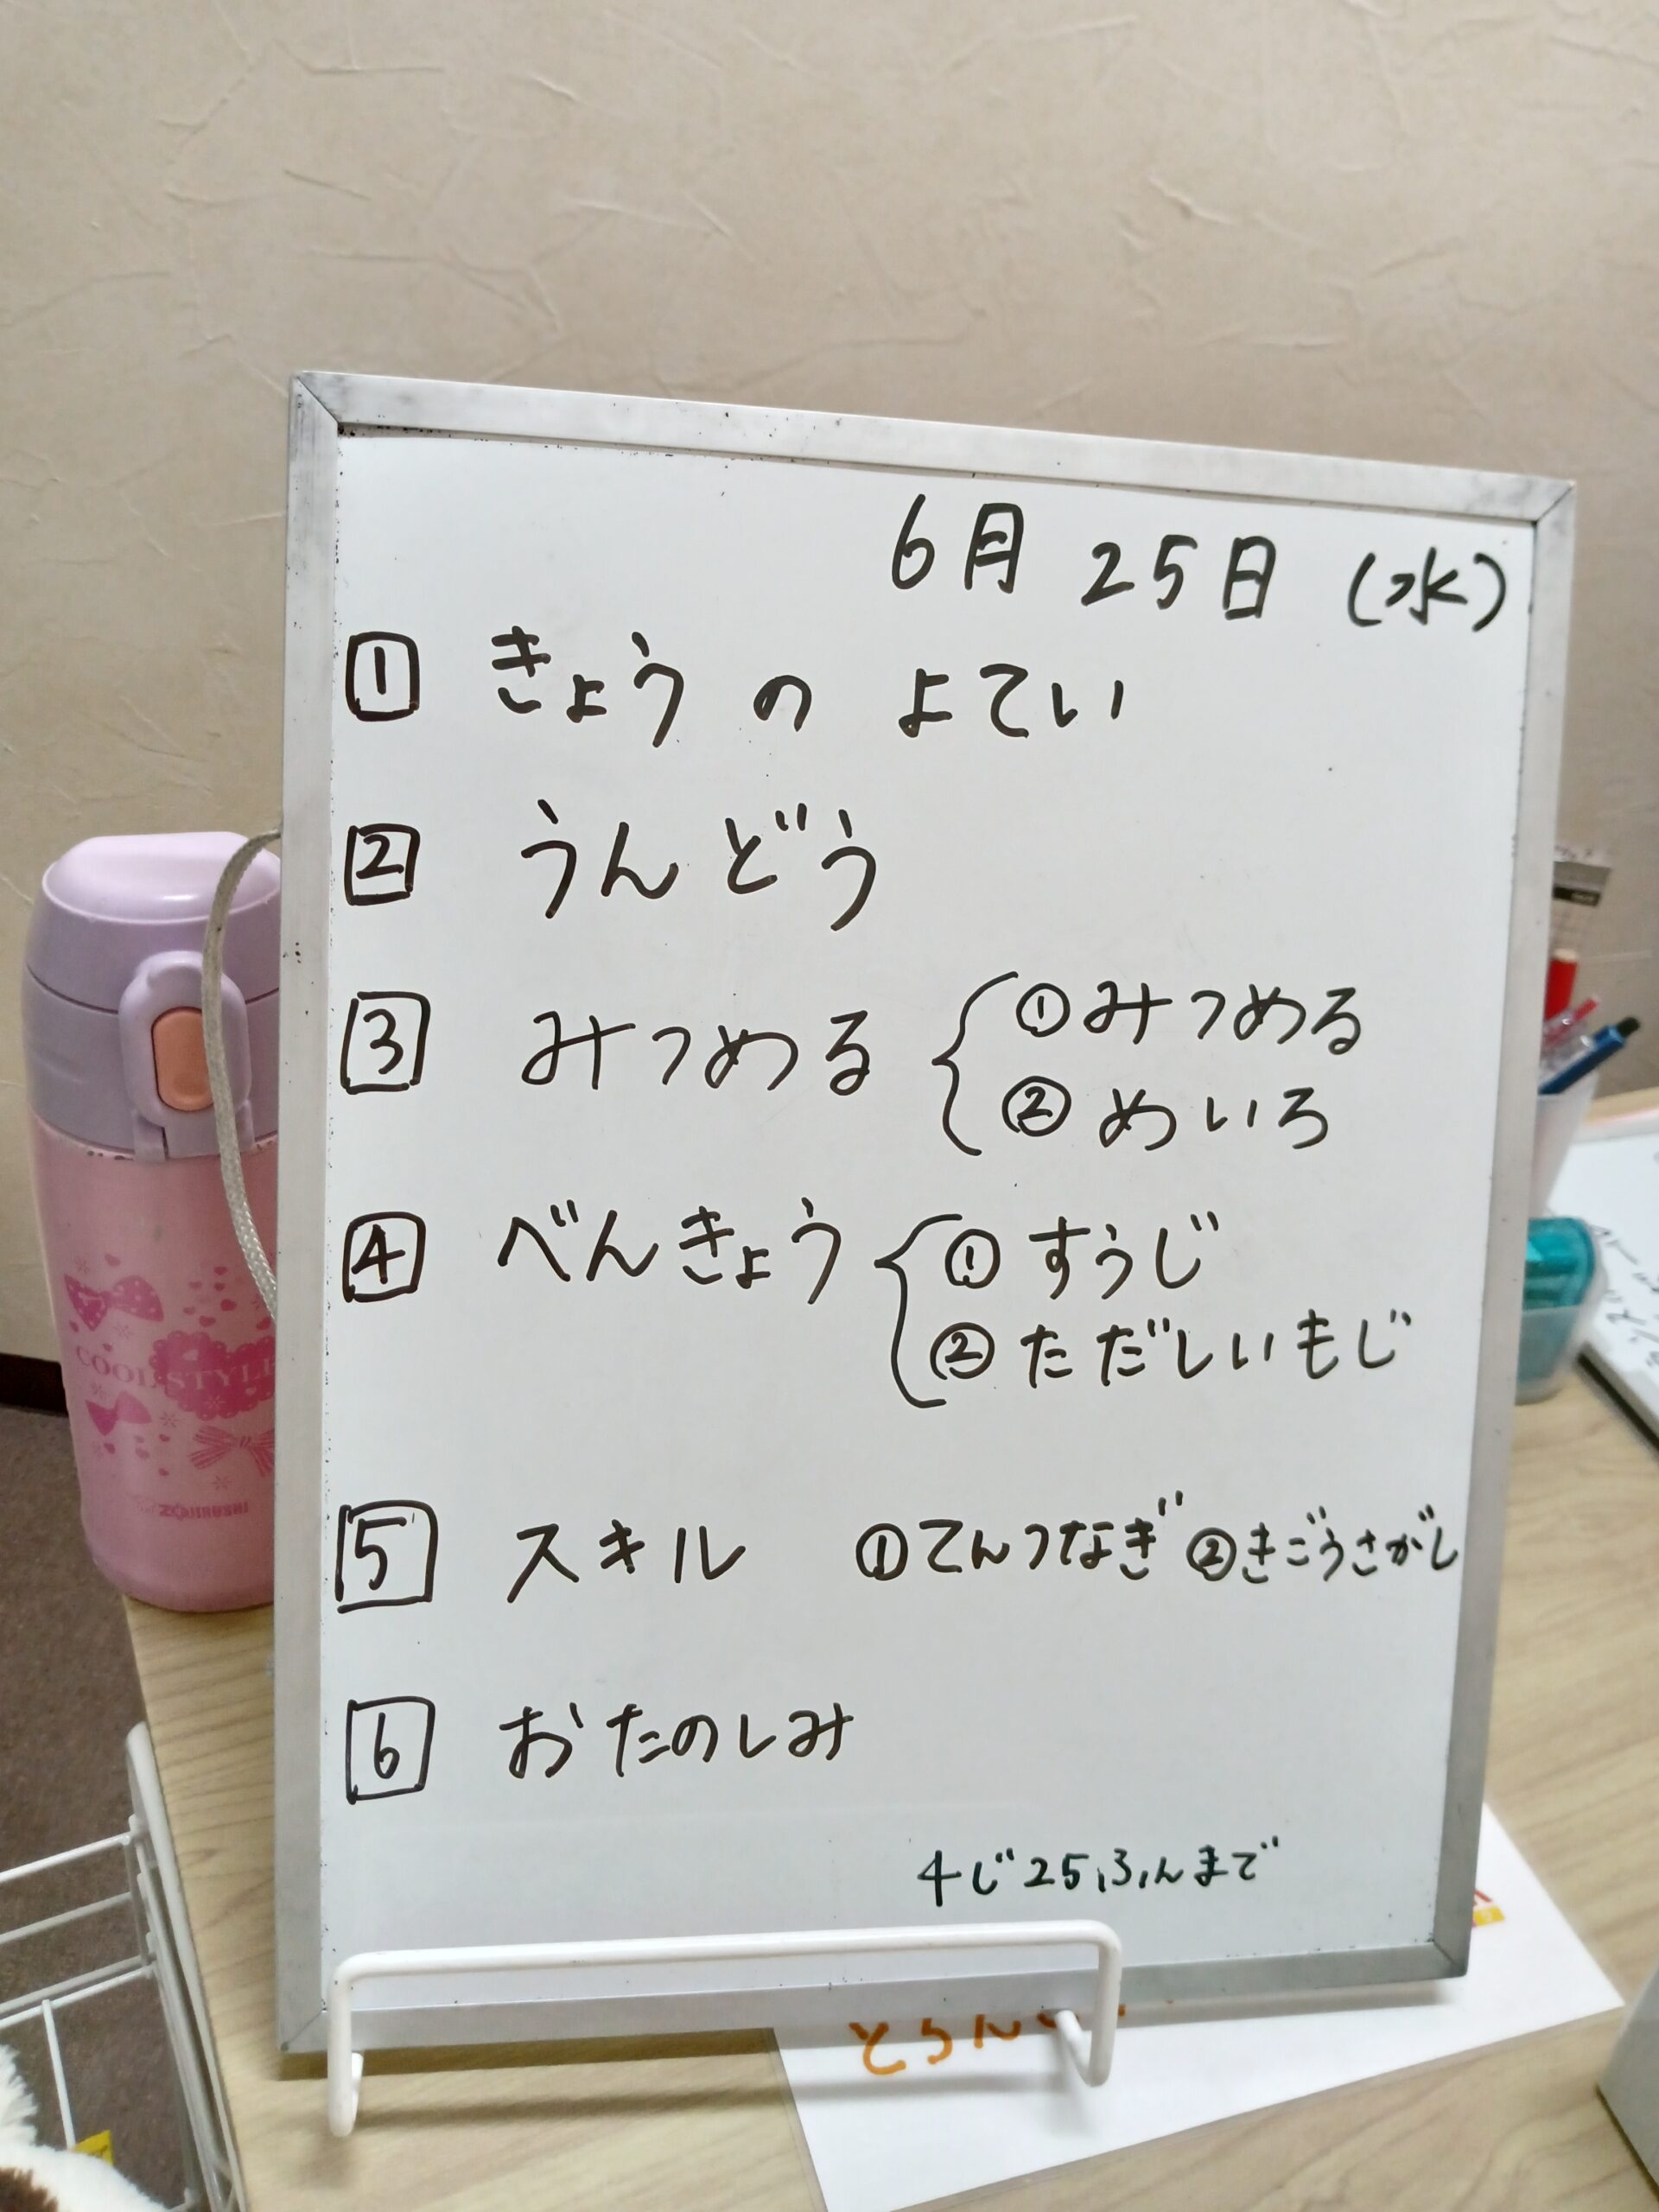 6月 25日 (水)
1 きょう の よてい
2 うんどう
3 みつめる ①みつめる
② めいろ
4 べんきょう ① すうじ
② ただしいもじ
5 スキル ①てんつなぎ ②きごうさがし
6 おたのしみ
4じ25ふんまで
COOL STYLE